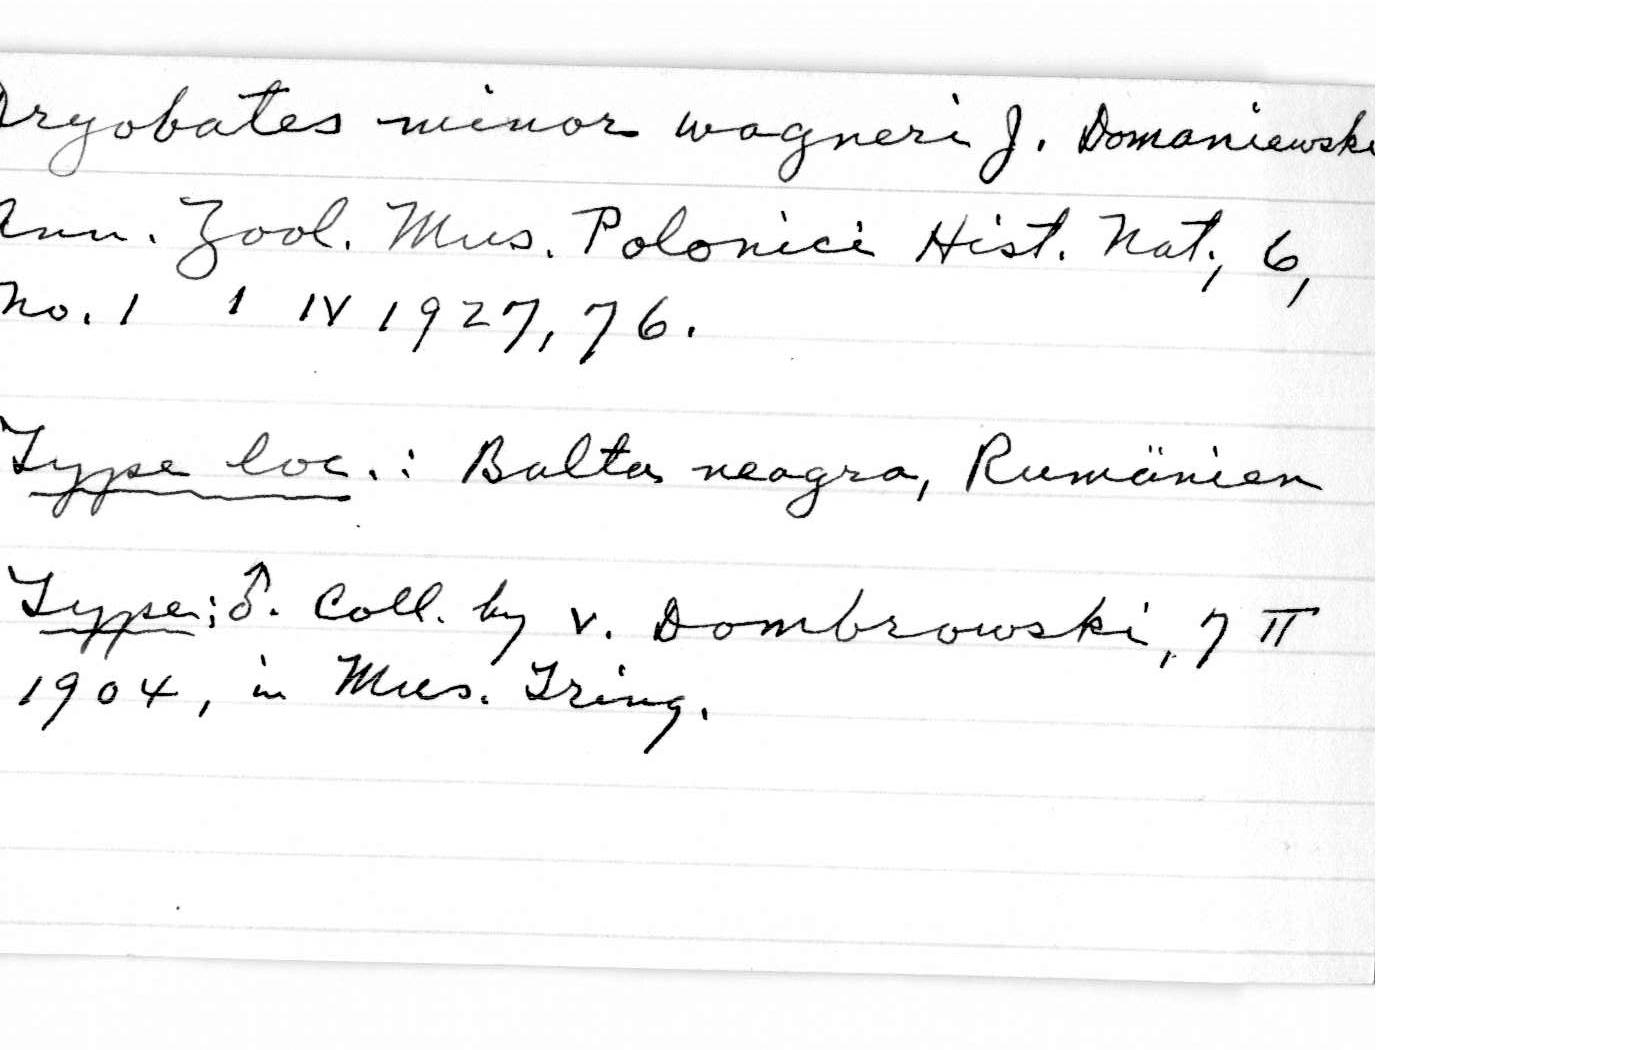 Dryobates minor wagneri J. Domaniewski
Ann. Zool. Mus. Polonici Hist. Nat., 6,
No. 1 1 IV 1927, 76.
Type loc.: Balta neagra, Rumänien
Type: ♂. Coll. by v. Dombrowski, 7 II
1904, in Mus. Tring.